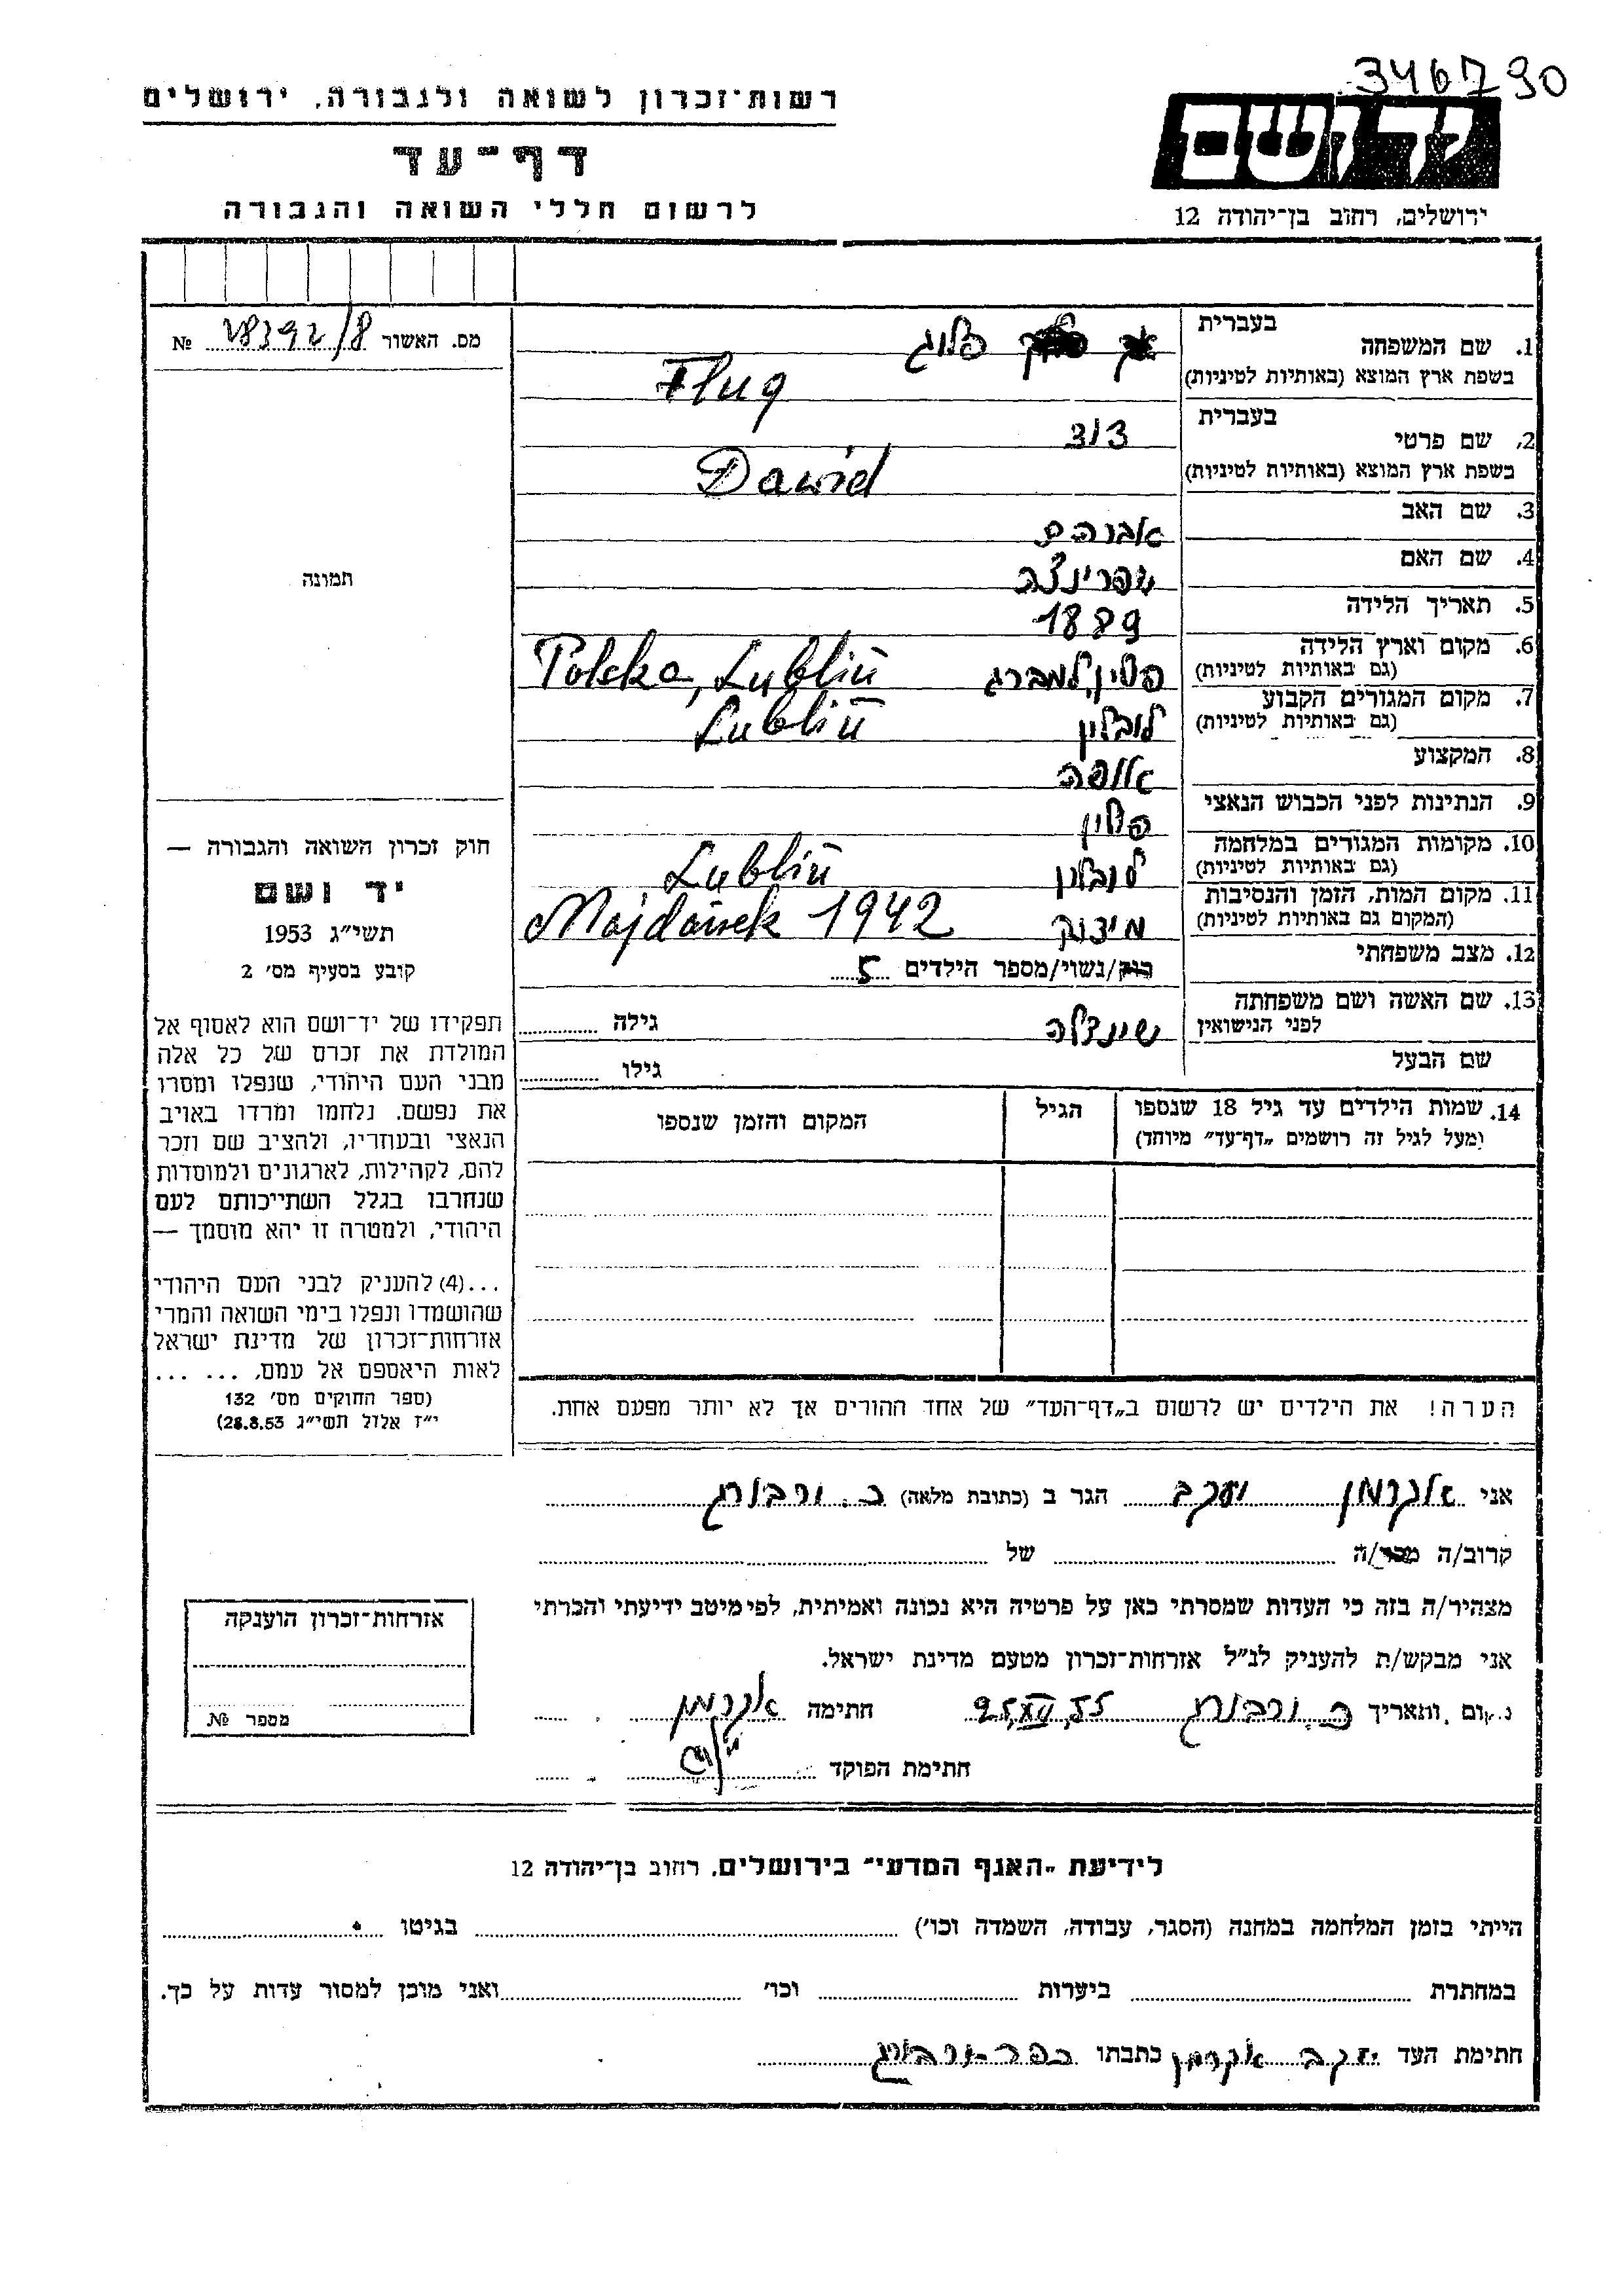 346790
רשות־זכרון לשואה ולגבורה, ירושלים
דף־עד
לרשום חללי השואה והגבורה
ידושם
ירושלים, רחוב בן־יהודה 12
מס. האשור 28392/8 №
תמונה
1. שם המשפחה בעברית פלוג
בשפת ארץ המוצא (באותיות לטיניות) Flug
2. שם פרטי בעברית דוד
בשפת ארץ המוצא (באותיות לטיניות) Dawid
3. שם האב אברהם
4. שם האם שפרינצה
5. תאריך הלידה 1889
6. מקום וארץ הלידה (גם באותיות לטיניות) פולין, למברג Polska, Lublin
7. מקום המגורים הקבוע (גם באותיות לטיניות) לובלין Lublin
8. המקצוע אופה
9. הנתינות לפני הכבוש הנאצי פולין
10. מקומות המגורים במלחמה (גם באותיות לטיניות) לובלין Lublin
11. מקום המות, הזמן והנסיבות (המקום גם באותיות לטיניות) Majdanek 1942
12. מצב משפחתי רוק/נשוי/מספר הילדים 5
13. שם האשה ושם משפחתה לפני הנישואין שיינדלה גילה
שם הבעל גילו
14. שמות הילדים עד גיל 18 שנספו הגיל המקום והזמן שנספו
(מעל לגיל זה רושמים „דף־עד״ מיוחד)
הערה! את הילדים יש לרשום ב„דף־העד״ של אחד ההורים אך לא יותר מפעם אחת.
חוק זכרון השואה והגבורה —
יד ושם
תשי״ג 1953
קובע בסעיף מס׳ 2
תפקידו של יד־ושם הוא לאסוף אל
המולדת את זכרם של כל אלה
מבני העם היהודי, שנפלו ומסרו
את נפשם, נלחמו ומרדו באויב
הנאצי ובעוזריו, ולהציב שם וזכר
להם, לקהילות, לארגונים ולמוסדות
שנחרבו בגלל השתייכותם לעם
היהודי, ולמטרה זו יהא מוסמך —
...(4) להעניק לבני העם היהודי
שהושמדו ונפלו בימי השואה והמרי
אזרחות־זכרון של מדינת ישראל
לאות היאספם אל עמם, ... ...
(ספר החוקים מס׳ 132
י״ז אלול תשי״ג 28.8.53)
אני אקרמן יעקב הגר ב (כתובת מלאה) כ. ורבורג
קרוב/ה מכר/ה של
מצהיר/ה בזה כי העדות שמסרתי כאן על פרטיה היא נכונה ואמיתית, לפי מיטב ידיעתי והכרתי
אני מבקש/ת להעניק לנ״ל אזרחות־זכרון מטעם מדינת ישראל.
מקום ותאריך כ. ורבורג 25.XII.55 חתימה אקרמן
חתימת הפוקד
אזרחות־זכרון הוענקה
מספר №
לידיעת „האגף המדעי״ בירושלים, רחוב בן־יהודה 12
הייתי בזמן המלחמה במחנה (הסגר, עבודה, השמדה וכו׳) בגיטו
במחתרת ביערות וכו׳ ואני מוכן למסור עדות על כך.
חתימת העד יעקב אקרמן כתבתו כפר־ורבורג